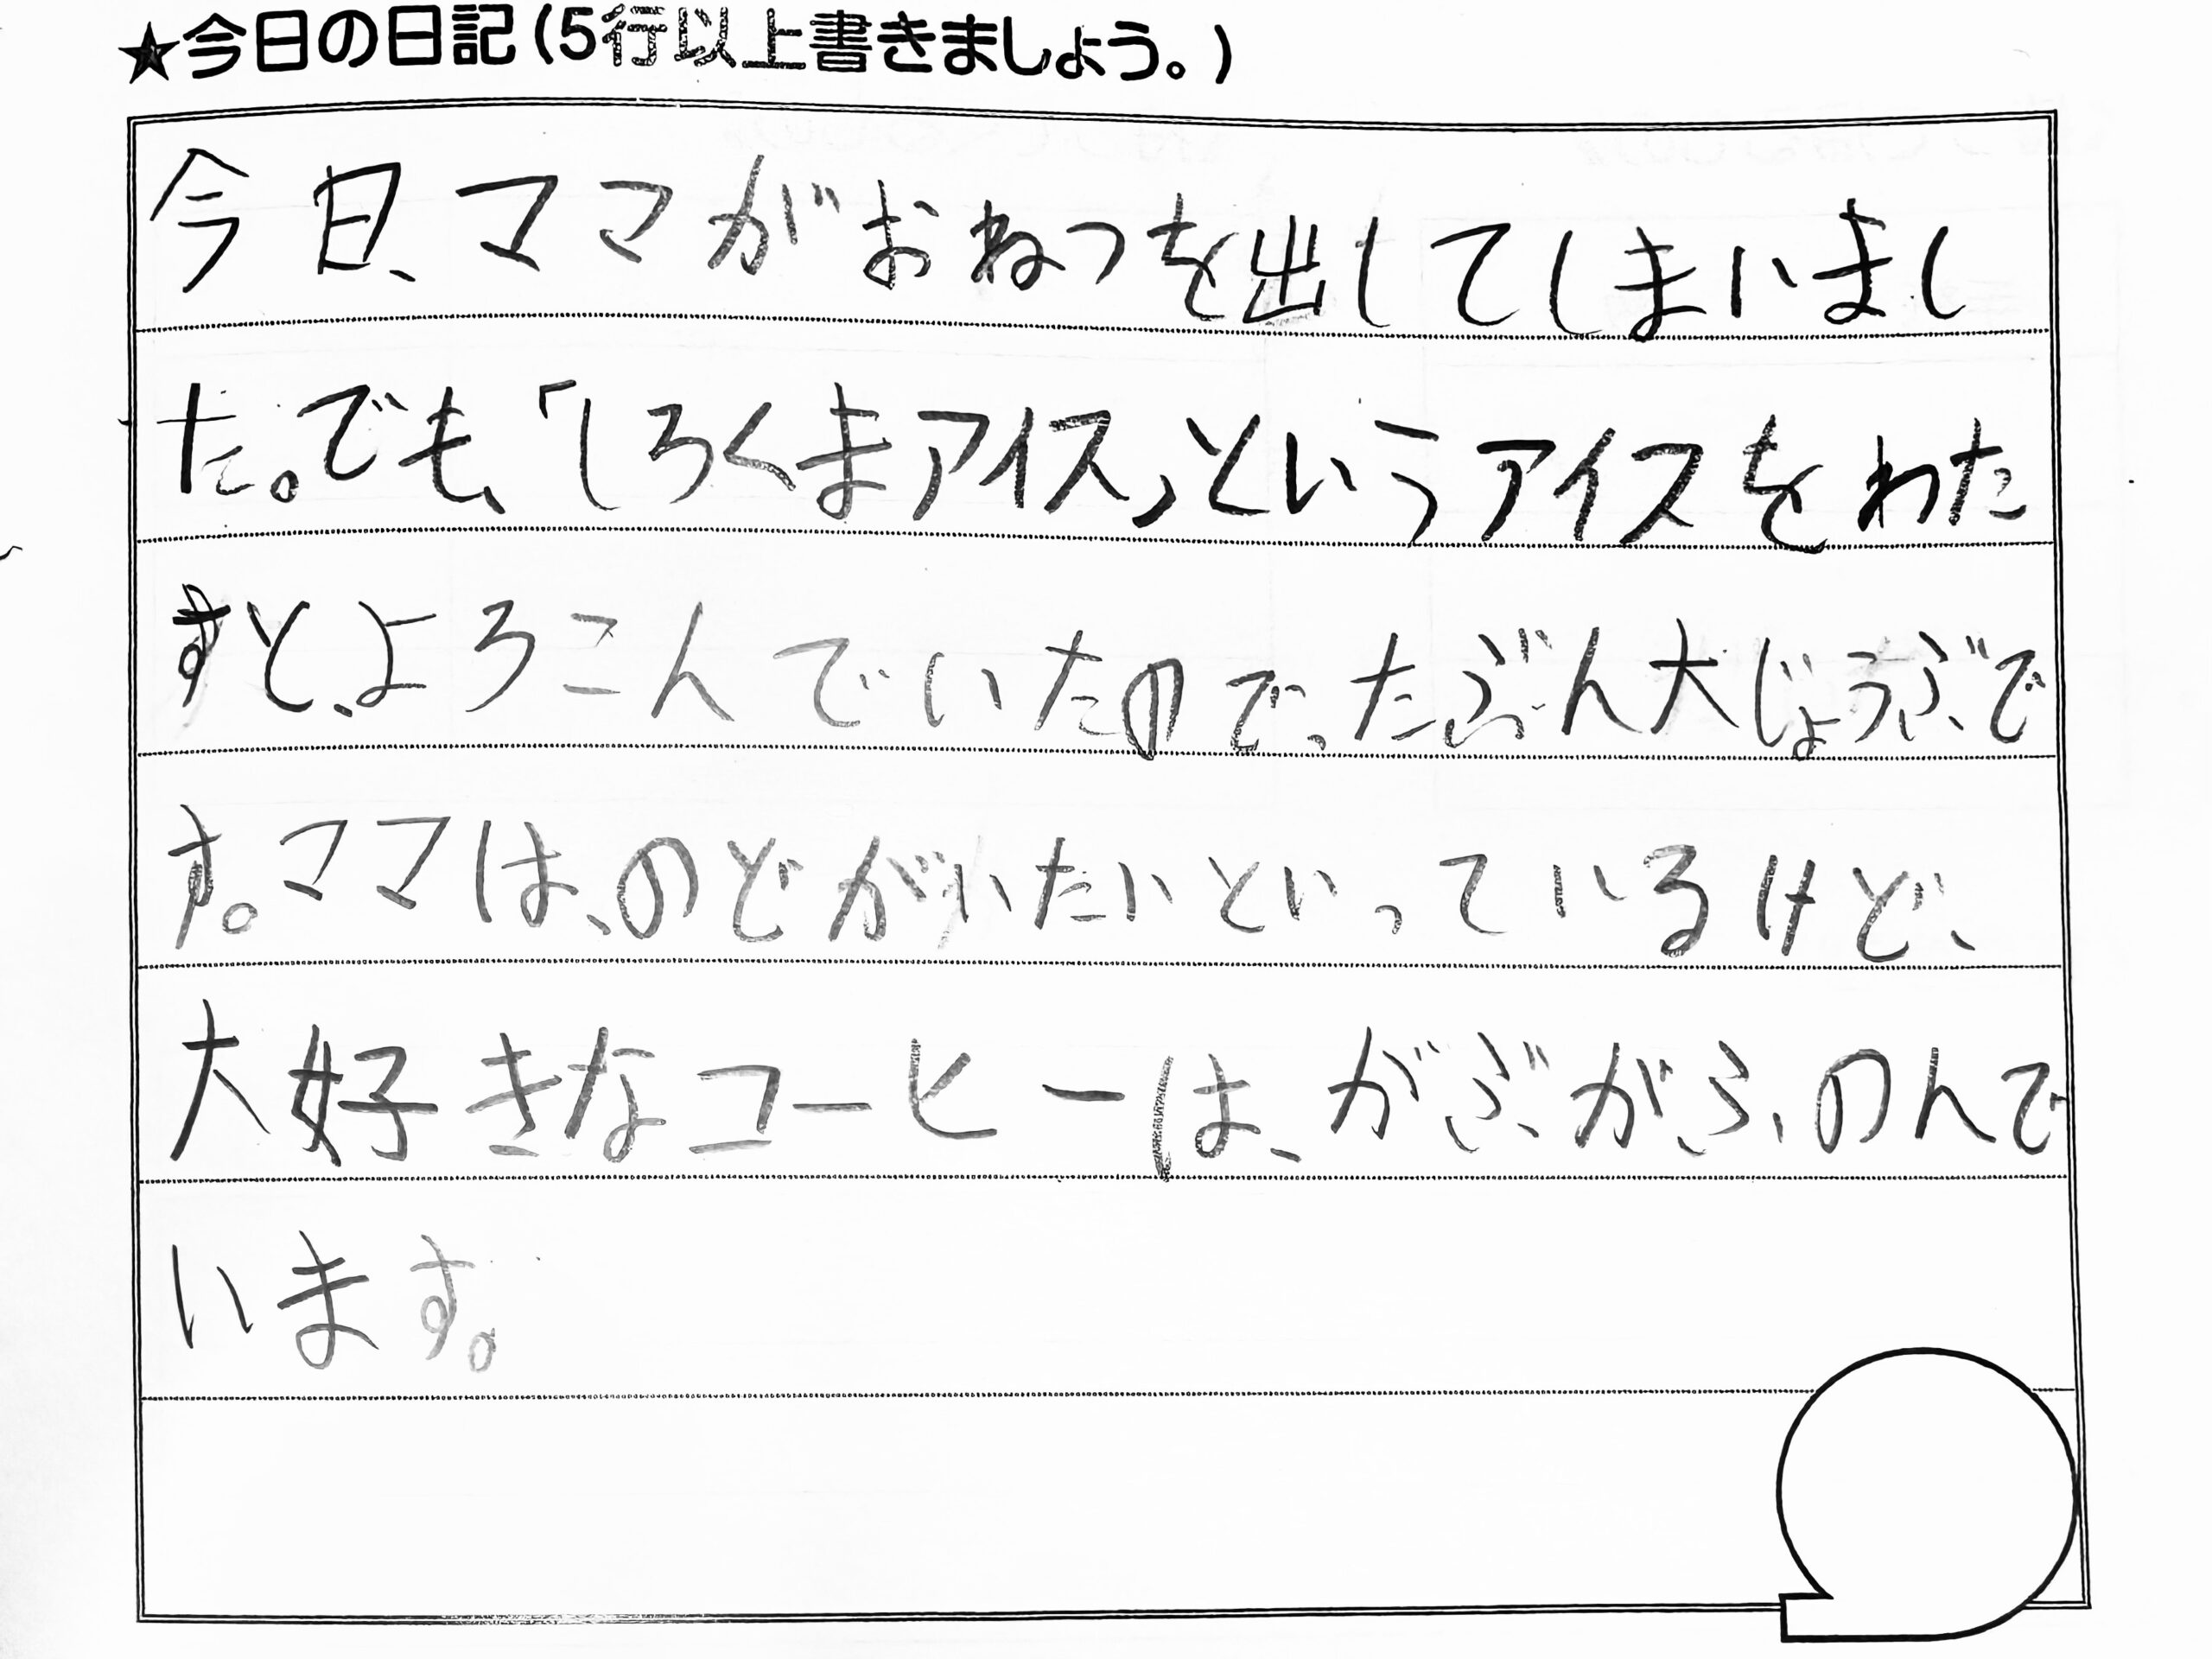 ★今日の日記(5行以上書きましょう。)
今日、ママがおねつを出してしまいまし
た。でも、「しろくまアイス」というアイスをわた
すと、よろこんでいたので、たぶん大じょうぶで
す。ママは、のどがいたいといっているけど、
大好きなコーヒーは、がぶがふ、のんで
います。